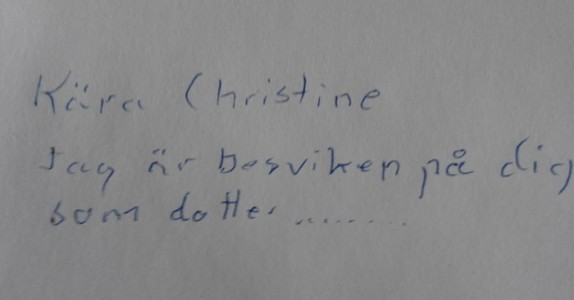 Kära Christine
Jag är besviken på dig
som dotter.......